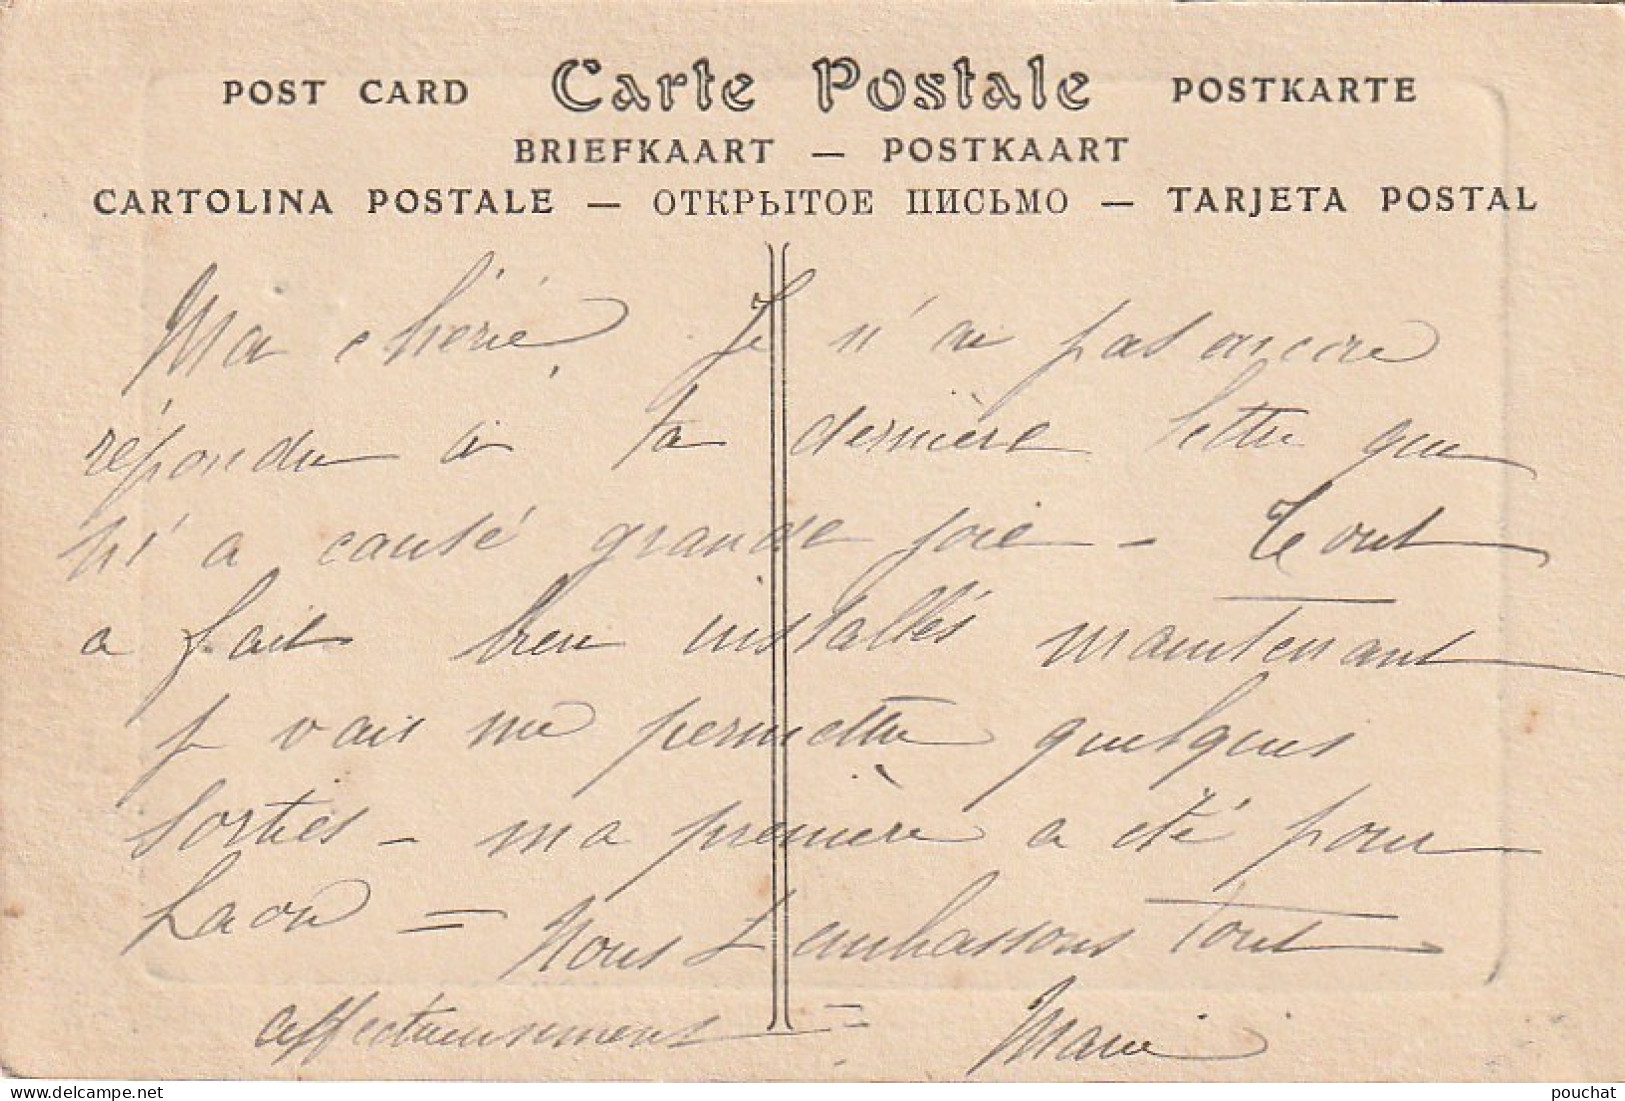 POST CARD Carte Postale POSTKARTE
BRIEFKAART — POSTKAART
CARTOLINA POSTALE — ОТКРЫТОЕ ПИСЬМО — TARJETA POSTAL
Ma chérie, Je n'ai pas encore
répondu à ta dernière lettre qui
m'a causé grande joie - Tout
a fait bien installés maintenant
je vais me permettre quelques
sorties - ma première a été pour
Laon = Nous t'embrassons tout
affectueusement =
Marie
pouchat